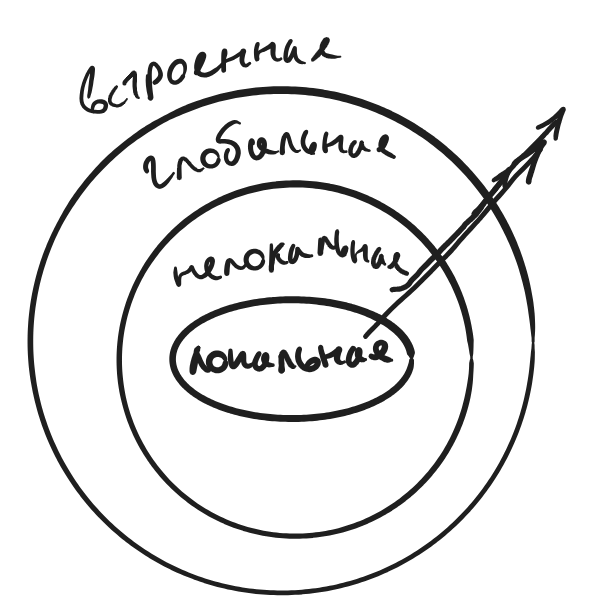 встроенная
глобальная
нелокальная
локальная